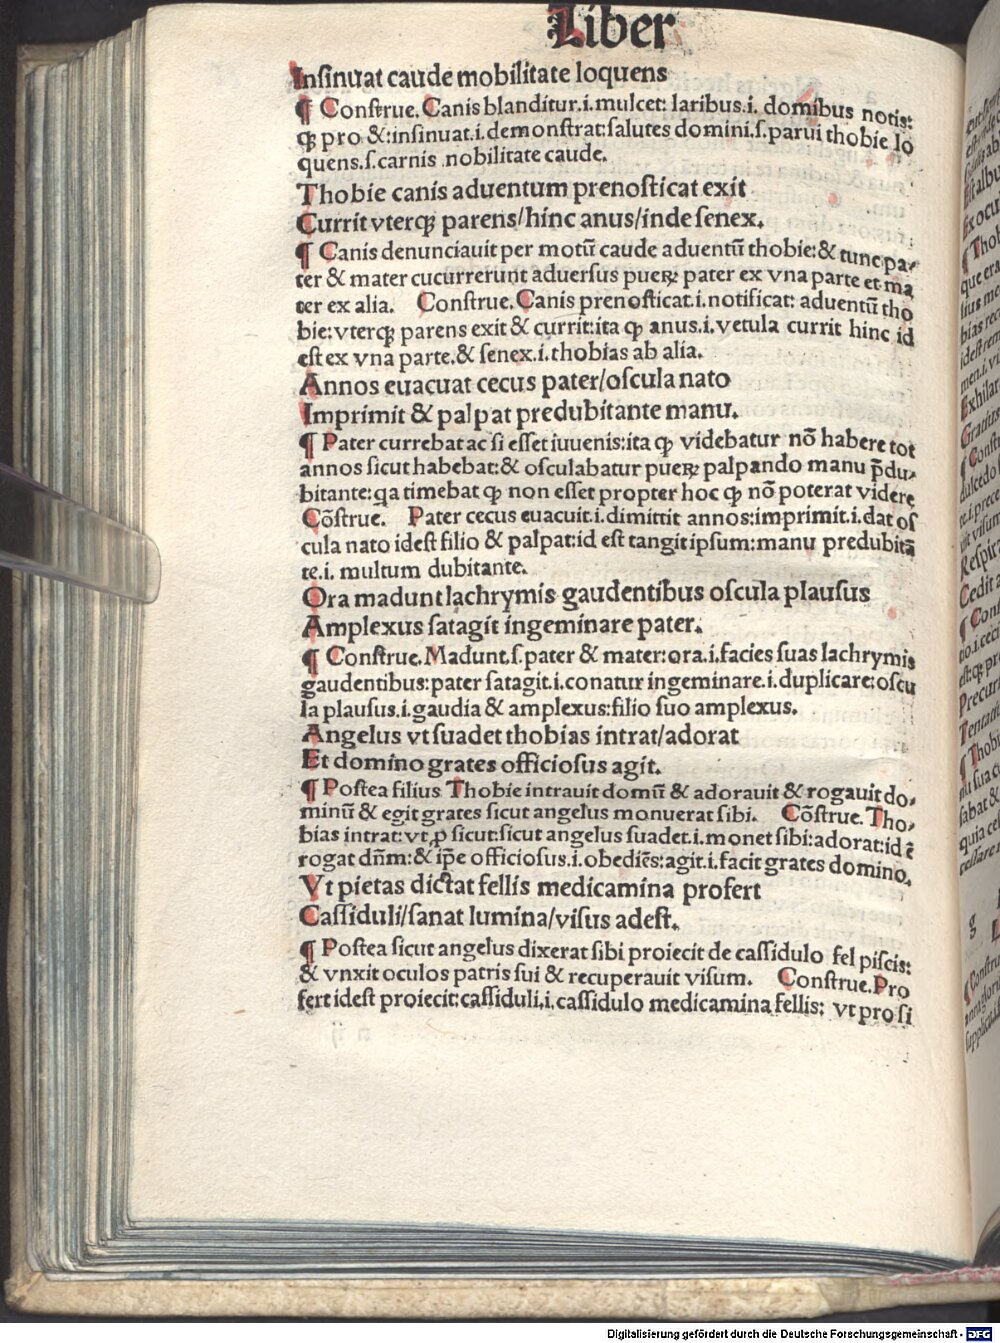 Liber
Insinuat caude mobilitate loquens
¶ Construe. Canis blanditur.i.mulcet: laribus.i. domibus notis:
qꝫ pro &:insinuat.i.demonstrat:salutes domini.s.parui thobie lo
quens.s.carnis nobilitate caude.
Thobie canis aduentum prenosticat exit
Currit vterqꝫ parens/hinc anus/inde senex.
¶ Canis denunciauit per motū caude aduentū thobie:& tunc pa⸗
ter & mater cucurrerunt aduersus pueꝝ pater ex vna parte et ma
ter ex alia. Construe. Canis prenosticat.i.notificat: aduentū tho
bie: vterqꝫ parens exit & currit:ita ꝙ anus.i.vetula currit hinc id
est ex vna parte.& senex.i.thobias ab alia.
Annos euacuat cecus pater/oscula nato
Imprimit & palpat predubitante manu.
¶ Pater currebat ac si esset iuuenis:ita ꝙ videbatur nō habere tot
annos sicut habebat:& osculabatur pueꝝ palpando manu p̄du⸗
bitante:qa timebat ꝙ non esset propter hoc ꝙ nō poterat videre
Cōstrue. Pater cecus euacuit.i.dimittit annos:imprimit.i.dat os
cula nato idest filio & palpat:id est tangit ipsum:manu predubitā
te.i. multum dubitante.
Ora madunt lachrymis gaudentibus oscula plausus
Amplexus satagit ingeminare pater.
¶ Construe. Madunt.s.pater & mater:ora.i.facies suas lachrymis
gaudentibus:pater satagit.i.conatur ingeminare.i.duplicare:oscu
la plausus.i.gaudia & amplexus:filio suo amplexus.
Angelus vt suadet thobias intrat/adorat
Et domino grates officiosus agit.
¶ Postea filius Thobie intrauit domū & adorauit & rogauit do⸗
minū & egit grates sicut angelus monuerat sibi. Cōstrue. Tho⸗
bias intrat:vt ꝓ sicut:sicut angelus suadet.i.monet sibi:adorat:id ē
rogat dn̄m:& ip̄e officiosus.i.obediēs:agit.i.facit grates domino.
Vt pietas dictat fellis medicamina profert
Cassiduli/sanat lumina/visus adest.
¶ Postea sicut angelus dixerat sibi proiecit de cassidulo fel piscis:
& vnxit oculos patris sui & recuperauit visum. Construe. Pro
fert idest proiecit:cassiduli.i.cassidulo medicamina fellis: vt pro si
Digitalisierung gefördert durch die Deutsche Forschungsgemeinschaft - DFG